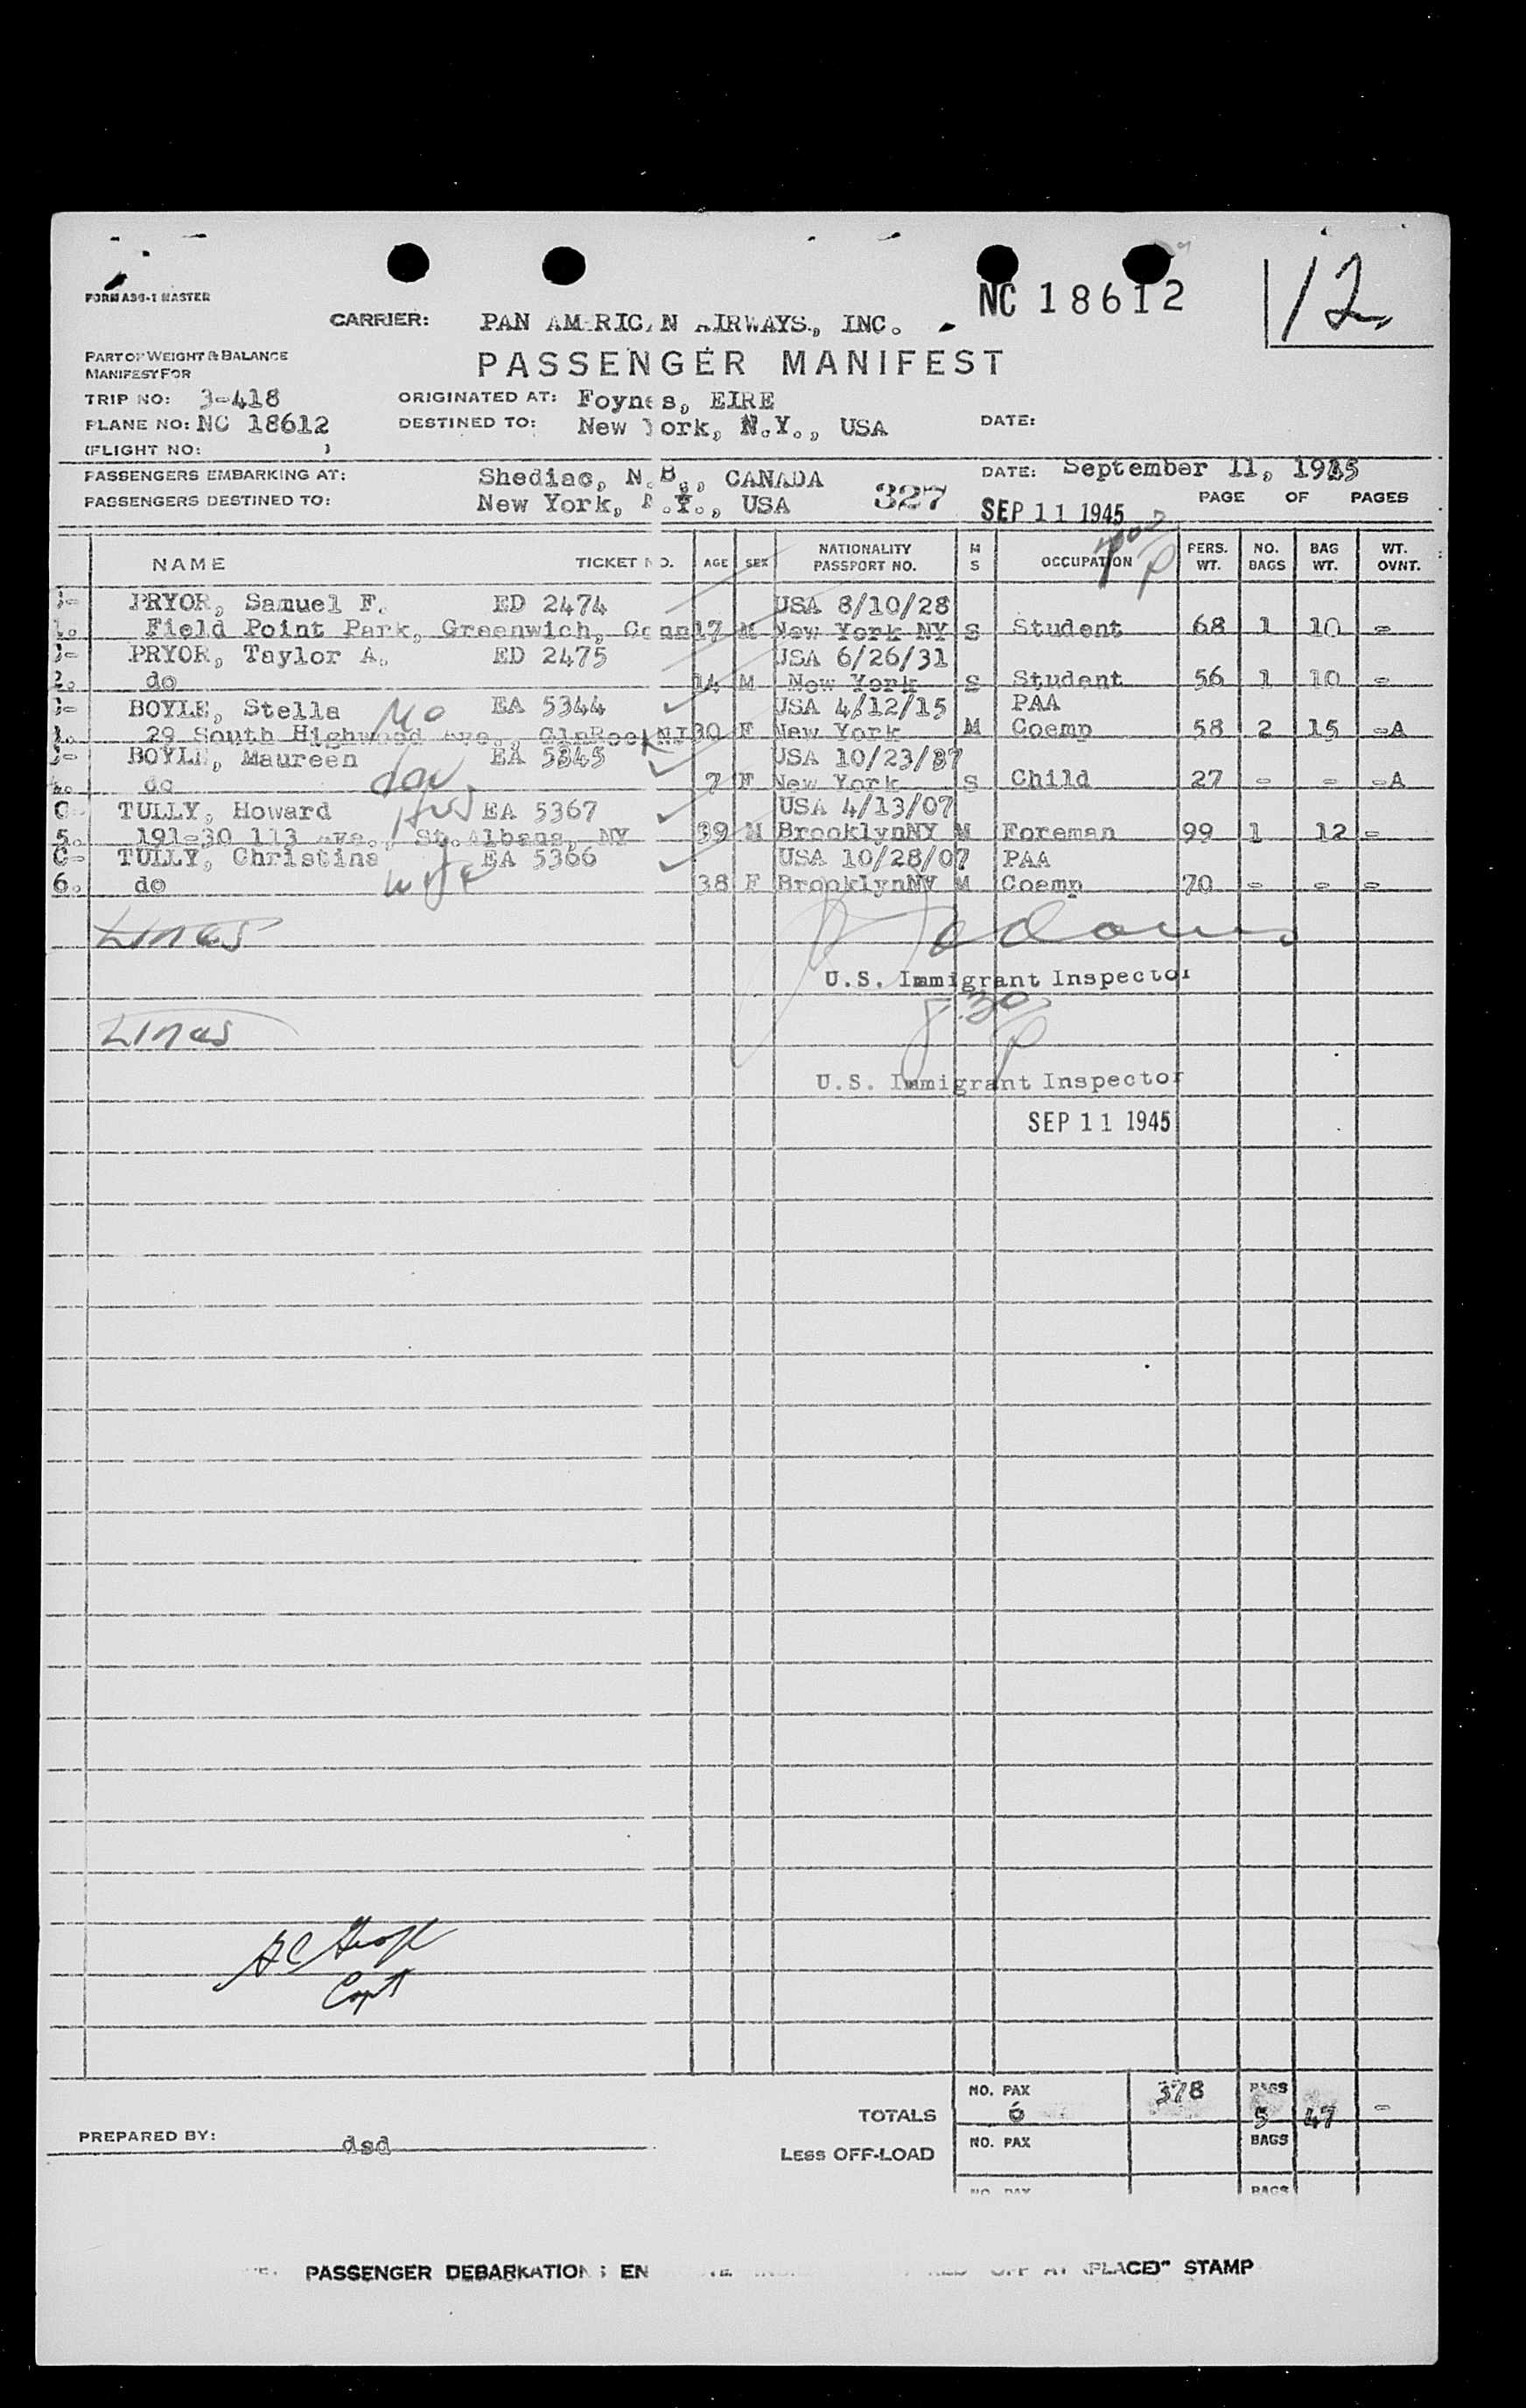 NC 18612
12
FORM A36-1 MASTER
CARRIER: PAN AMERICAN AIRWAYS, INC.
PART OF WEIGHT & BALANCE
MANIFEST FOR
PASSENGER MANIFEST
TRIP NO: 3-418 ORIGINATED AT: Foynes, EIRE
PLANE NO: NC 18612 DESTINED TO: New York, N.Y., USA DATE:
(FLIGHT NO: )
PASSENGERS EMBARKING AT: Shediac, N.B., CANADA DATE: September 11, 1945
PASSENGERS DESTINED TO: New York, N.Y., USA 327 SEP 11 1945 PAGE OF PAGES
NAME TICKET NO. AGE SEX NATIONALITY PASSPORT NO. M S OCCUPATION PERS. WT. NO. BAGS BAG WT. WT. OVNT.
PRYOR, Samuel F. ED 2474 USA 8/10/28
1. Field Point Park, Greenwich, Conn 17 M New York NY S Student 68 1 10 -
PRYOR, Taylor A. ED 2475 USA 6/26/31
2. do 14 M New York S Student 56 1 10 -
BOYLE, Stella Mo EA 5344 USA 4/12/15 PAA
29 South Highwood Ave., GlnRock NJ 30 F New York M Coemp 58 2 15 -A
BOYLE, Maureen dau EA 5345 USA 10/23/37
4. do 7 F New York S Child 27 - - -A
C- TULLY, Howard Hus EA 5367 USA 4/13/07
5. 191-30 113 Ave., St.Albans, NY 39 M BrooklynNY M Foreman 99 1 12 -
C- TULLY, Christina wife EA 5366 USA 10/28/07 PAA
6. do 38 F BrooklynNY M Coemp 70 - - -
Lines
U.S. Immigrant Inspector
830
P
Lines
U.S. Immigrant Inspector
SEP 11 1945
Capt
TOTALS NO. PAX 6 378 BAGS 5 47 -
PREPARED BY: dsd
Less OFF-LOAD NO. PAX BAGS
NO. PAX BAGS
PASSENGER DEBARKATIONS EN OFF AT (PLACE)" STAMP